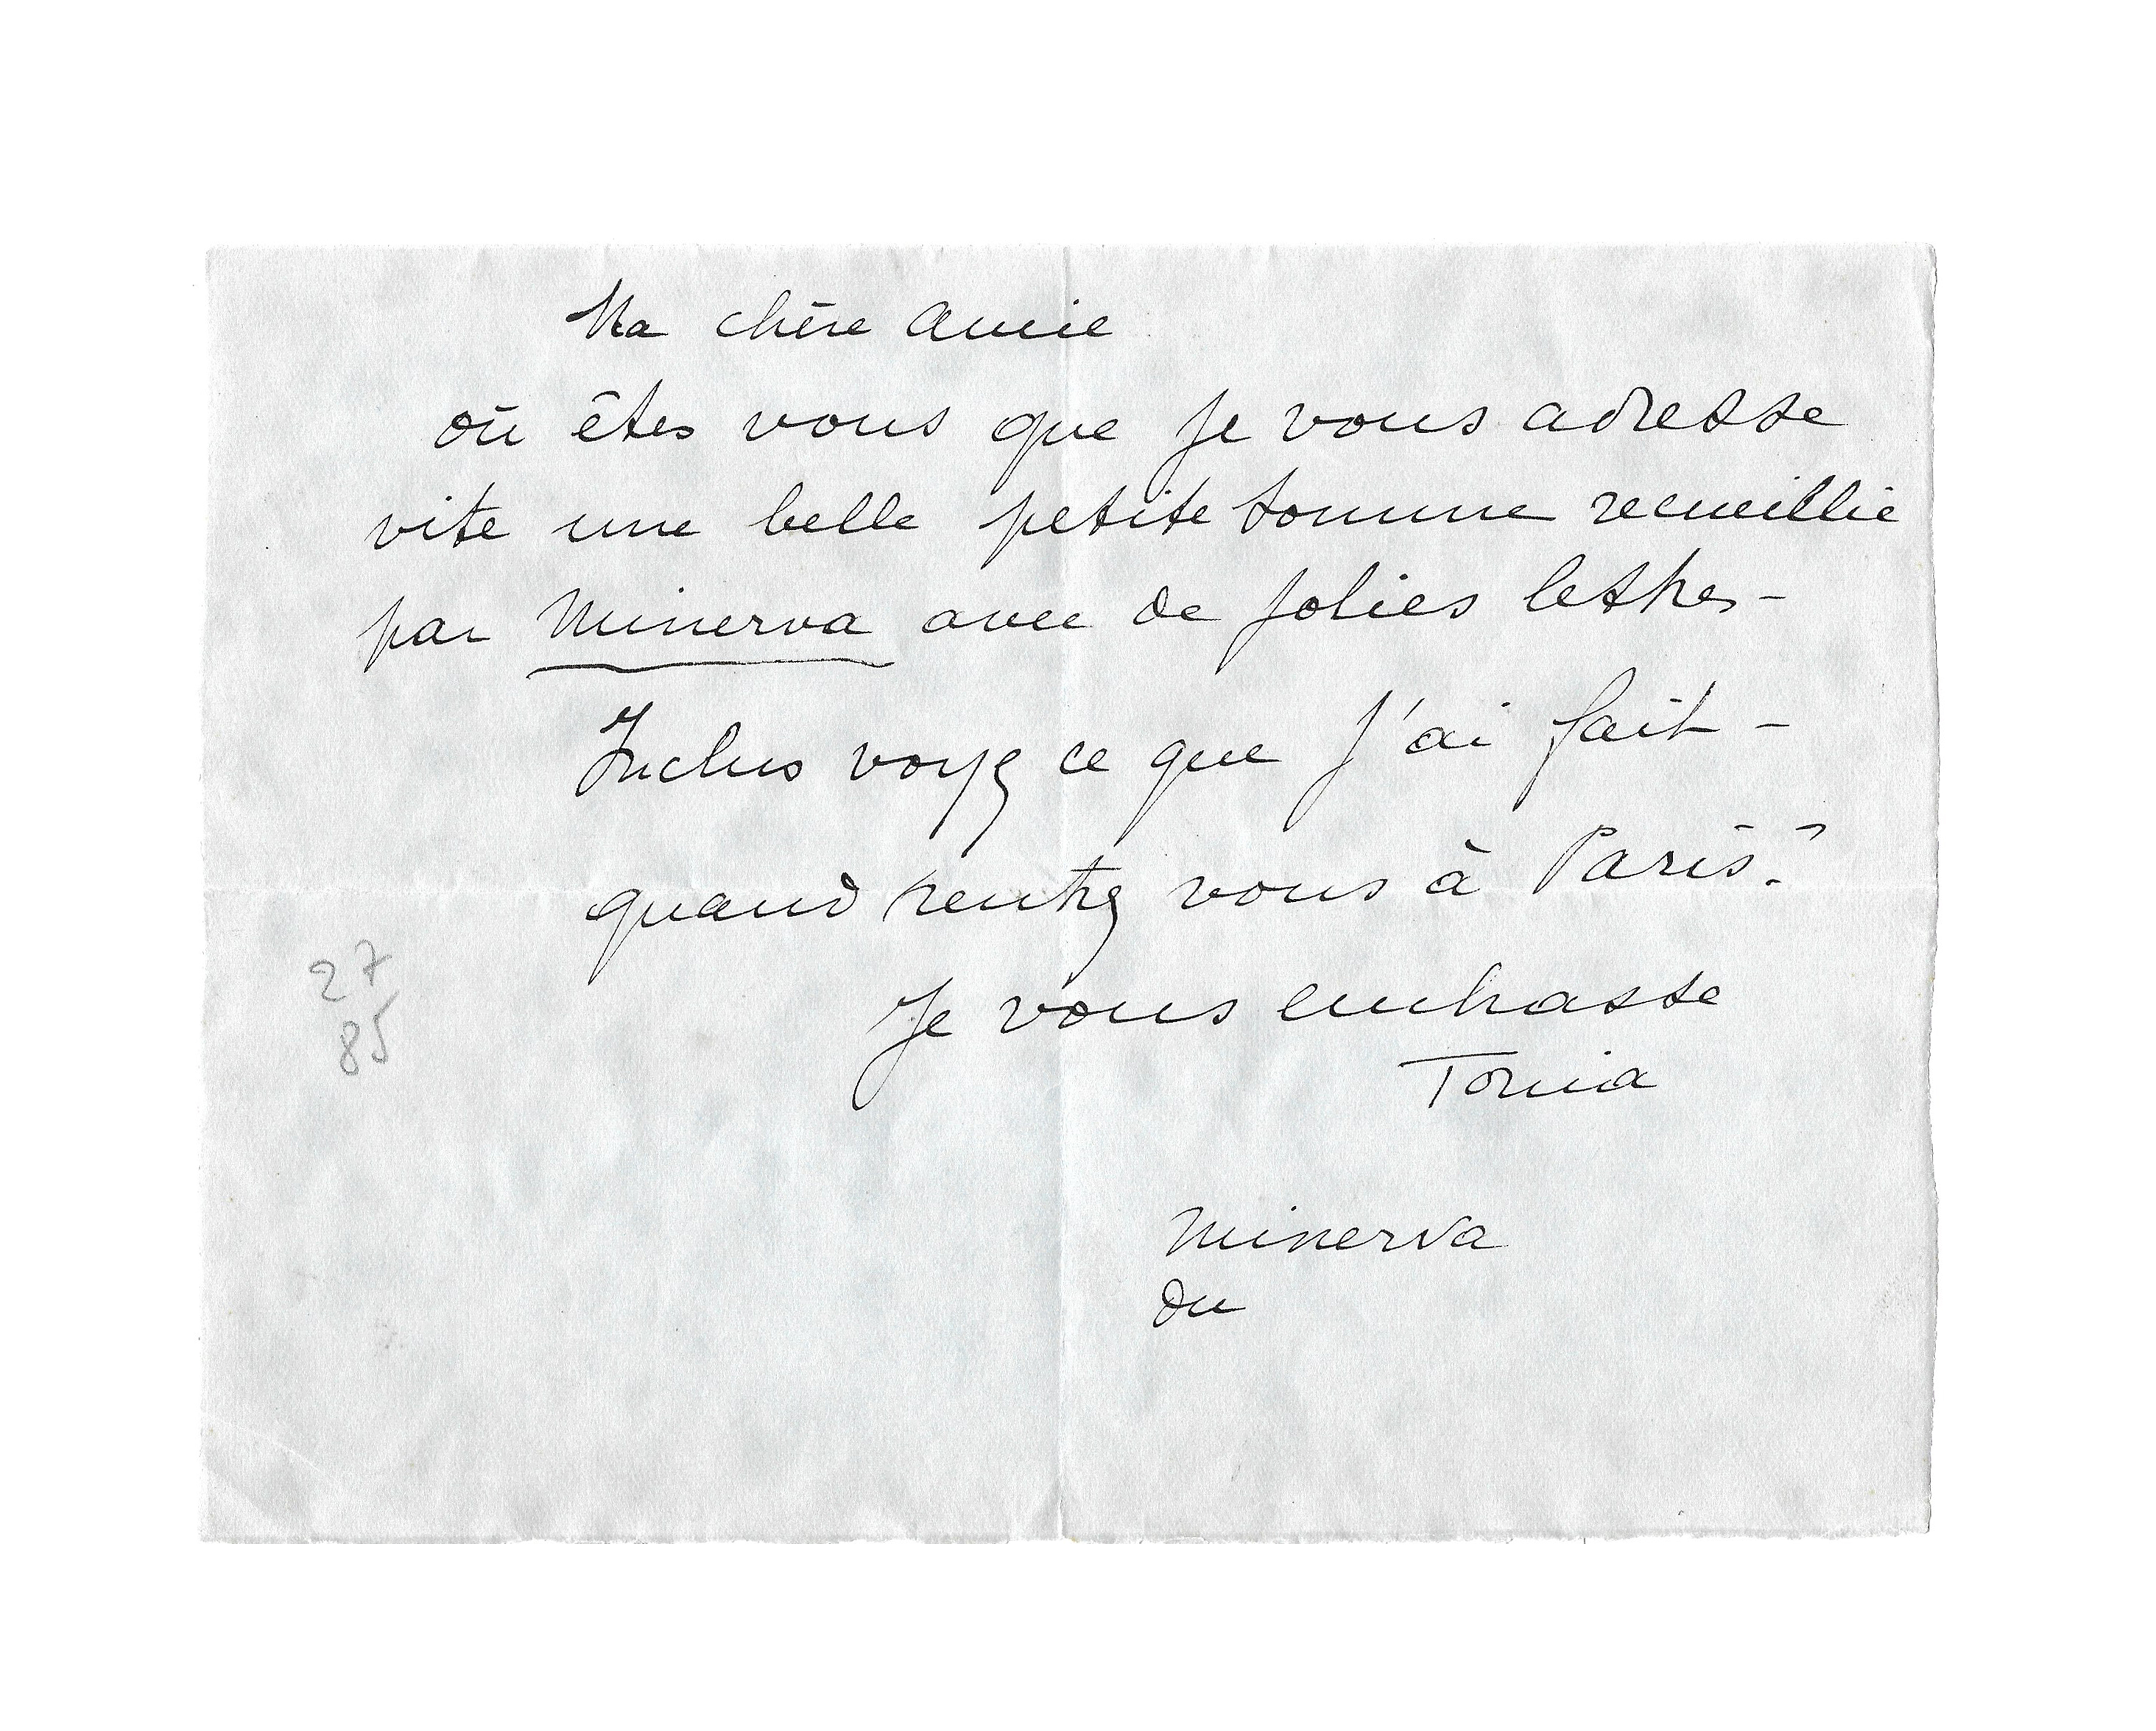 Ma chère Amie
où êtes vous que je vous adresse
vite une belle petite somme recueillie
par Minerva avec de jolies lettres -
Inclus voyez ce que j'ai fait -
quand rentrez vous à Paris ?
27
85
Je vous embrasse
Tonia
Minerva
du